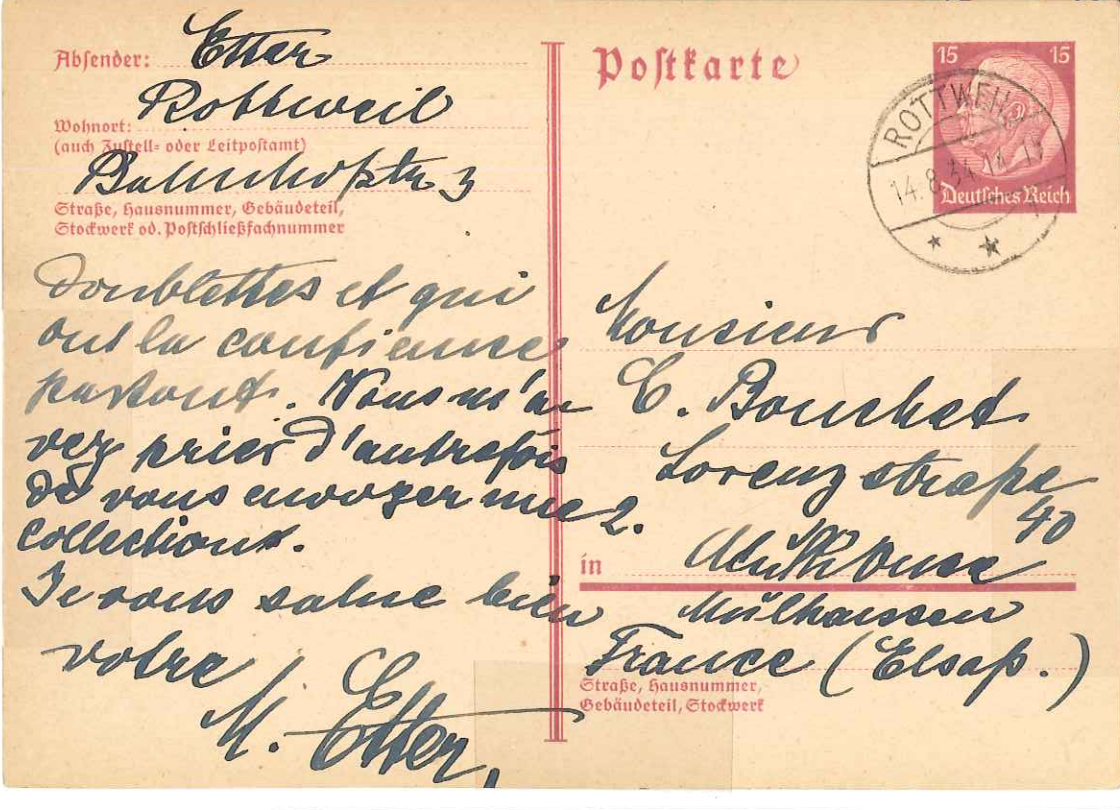 Absender: Etter
Rottweil
Wohnort:
(auch Zustell- oder Leitpostamt)
Bahnhofstr 3
Straße, Hausnummer, Gebäudeteil,
Stockwerk od. Postschließfachnummer
Doublettes et qui
ont la confience
partout. Vous m'a
vez prier d'autrefois
de vous envoyer une 2.
collections.
Je vous salue bien
votre
M. Etter,
Postkarte
15 15
Deutsches Reich
ROTTWEIL
14.8.34
Monsieur
C. Bouchet
Lorenzstraße
40
in Mulhouse
Mülhaussen
France (Elsaß.)
Straße, Hausnummer,
Gebäudeteil, Stockwerk